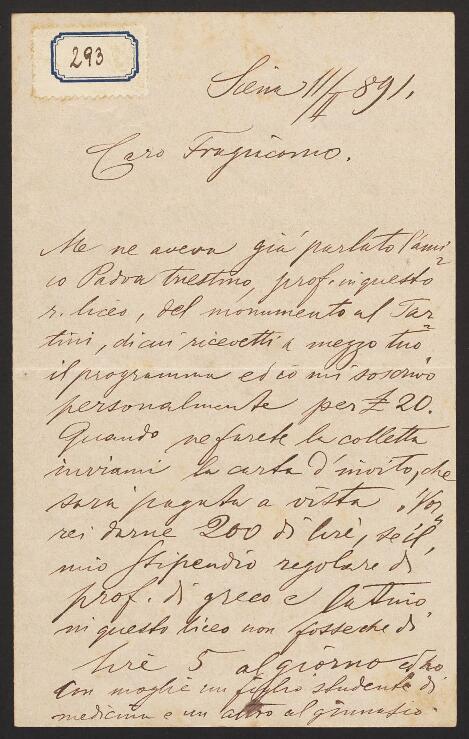 293
Siena 11/II 891.
Caro Fragiacomo.
Me ne aveva già parlato l'ami
co Padva triestino, prof. in questo
r. liceo, del monumento al Tar
tini, di cui ricevetti a mezzo tuo
il programma ed io mi soscrivo
personalmente per £ 20.
Quando ne farete la colletta
inviami la carta d'invito, che
sarà pagata a vista. Vor
rei darne 200 di lire, se il
mio stipendio regolare di
prof. di greco e latino
in questo liceo non fosse che di
lire 5 al giorno ed ho
con moglie un figlio studente di
medicina e un altro al ginnasio.